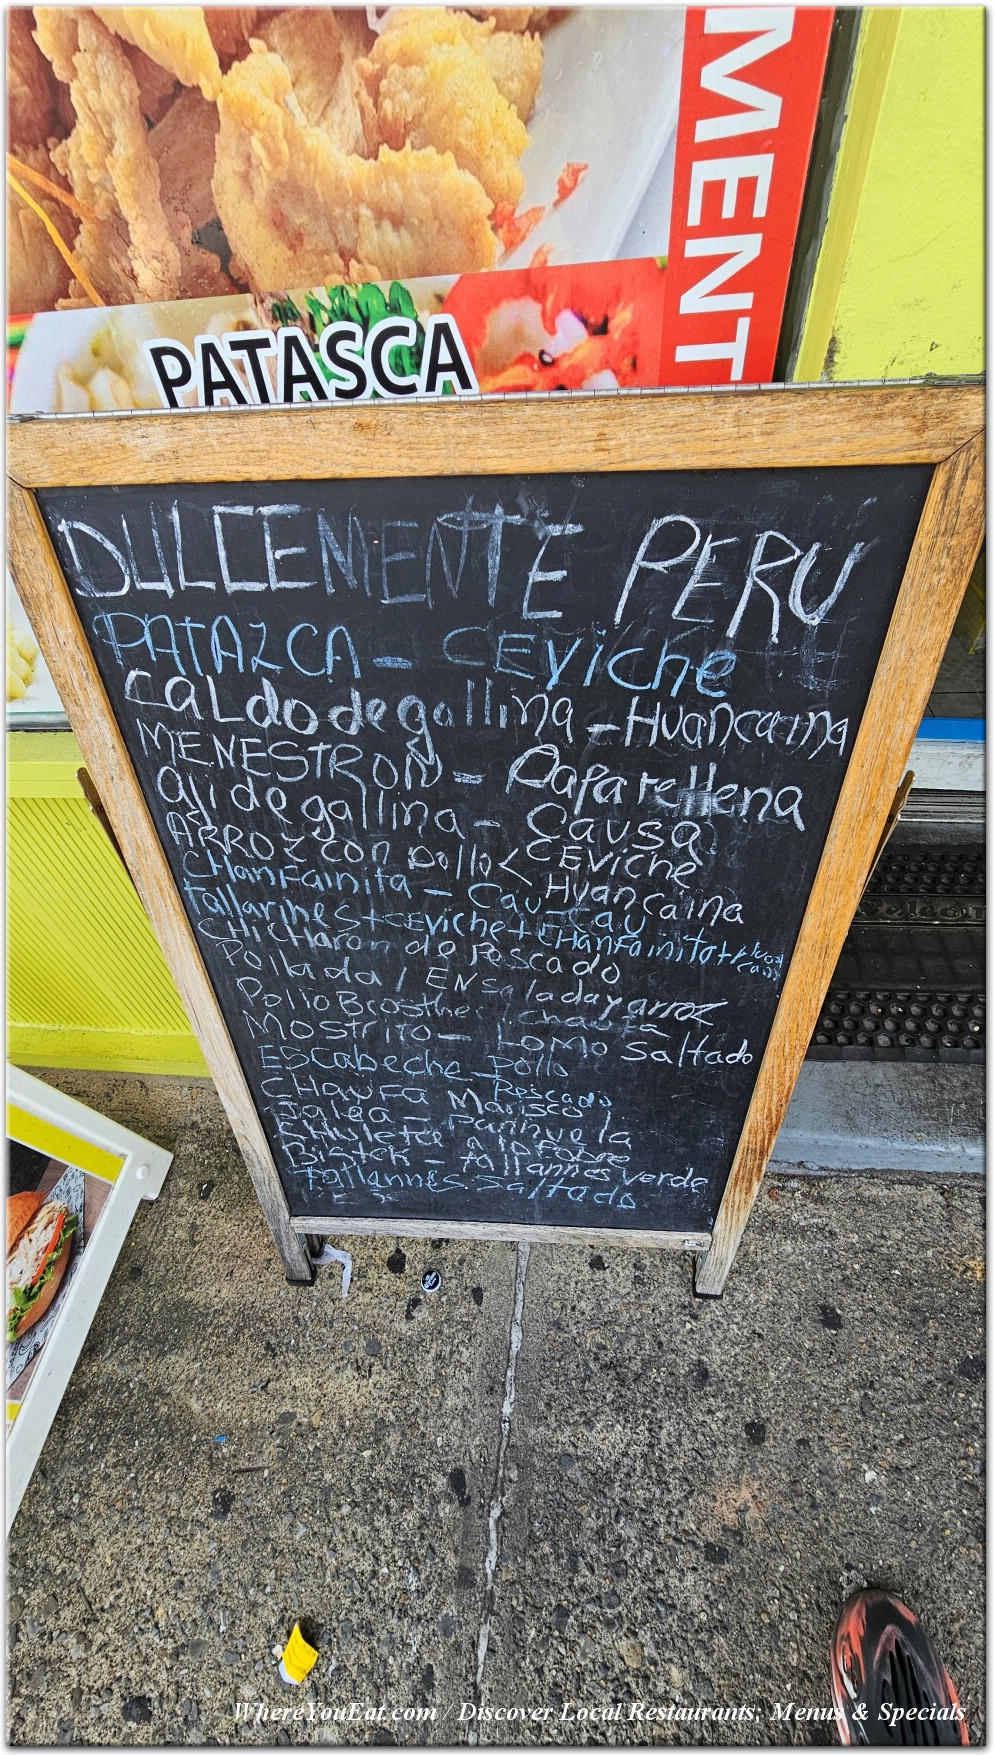 MENT
PATASCA
DULCEMENTE PERU
PATAZCA - CEViche
CaLdo de gallina - Huancaina
MENESTRON - Papa rellena
aji de gallina - Causa
ARROZ con pollo < CEViche
Huancaina
CHanFainita - Cau-Cau
Tallarines + CEViche + CHanFainita +
CHICHaron de Pescado
Pollada / ENsalada y arroz
Pollo Brosther / Chaufa
Mostrito - LoMo Saltado
ESCabeche - Pollo
Pescado
CHauFa Marisco
Jalea -
a lo Pobre
Bistek - tallarines verde
tallarines Saltado
WhereYouEat.com / Discover Local Restaurants; Menus & Specials